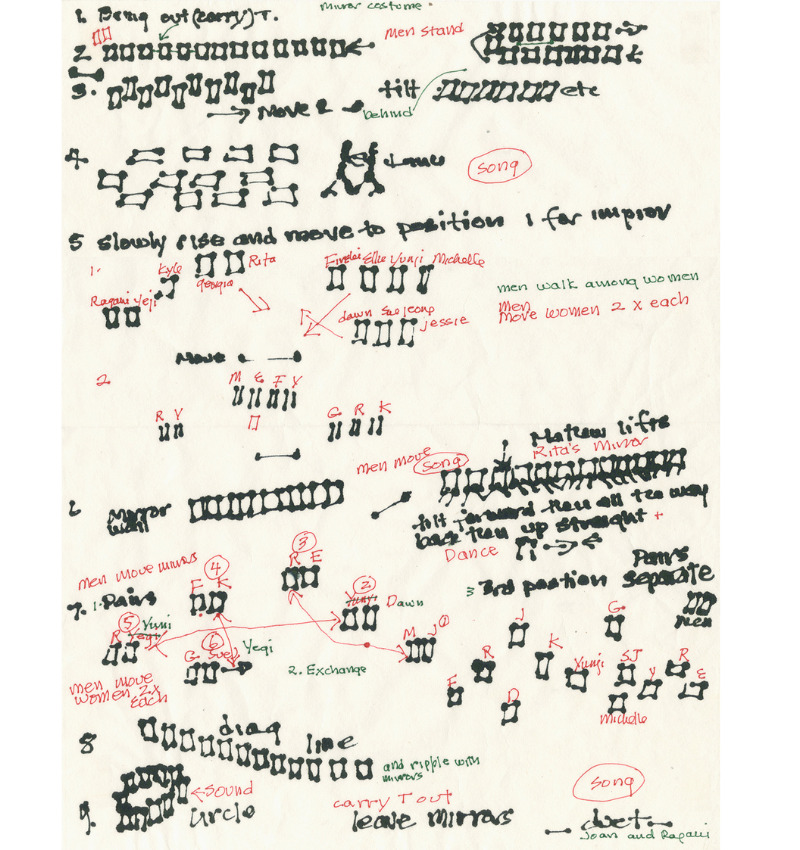 1. Bring out (carry) T.
mirror costume.
2
men stand
3.
Move
tilt
etc
behind
4
song
5 slowly rise and move to position 1 for improv
1.
Kyle
Rita
Georgia
Ragani Yeji
Ellie Yunji Michelle
dawn Suejeong
Jessie
men walk among women
men
Move women 2 x each
Move
2
M E F Y
R Y
G R K
men move
song
Matthew lifts
Rita's Mirror
6
Mirror
wall
tilt forward then all the way
back then up straight +
Dance
men move mirrors
7. 1. Pairs
4
F K
3
R E
2
Dawn
5
Yunji
R
6
G Suej
Yeqi
M J 1
2. Exchange
men move
women 2x
each
3 3rd position
Pairs
separate
men
J
G
R
K
Yunji
SJ
Y
R
E
F
D
Michelle
8
diag line
and ripple with
mirrors
9.
← Sound
Circle
carry T out
leave mirrors
song
duet
Joan and Ragani